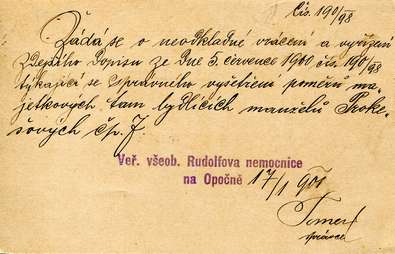 Čís. 190/98
Žádá se o neodkladné vrácení a vyřízení
zdejšího dopisu ze dne 5. července 1900 čís. 190/98
týkající se správného vyšetření poměrů ma-
jetkových, tam bydlících manželů Proke-
šových čp. 7.
Veř. všeob. Rudolfova nemocnice
na Opočně 17/1 901
správce